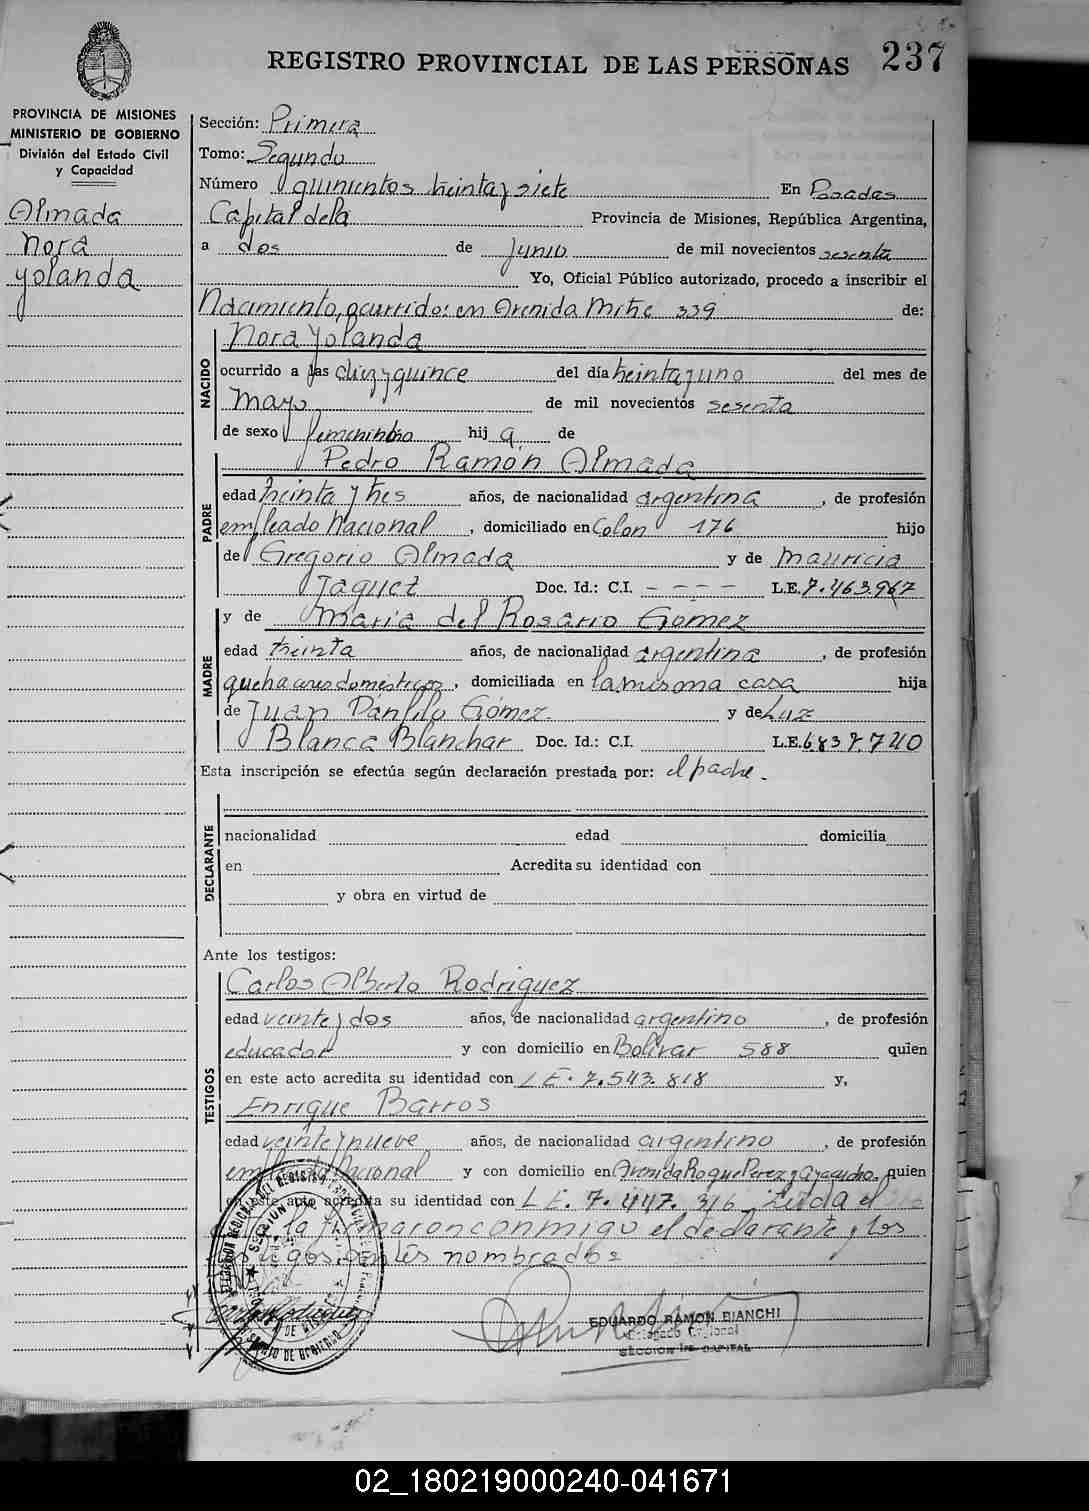 REGISTRO PROVINCIAL DE LAS PERSONAS 237
PROVINCIA DE MISIONES
MINISTERIO DE GOBIERNO
División del Estado Civil
y Capacidad
Almada
Nora
Yolanda
Sección: Primera
Tomo: Segundo
Número quinientos treinta y siete En Posadas
Capital de la Provincia de Misiones, República Argentina,
a dos de Junio de mil novecientos sesenta
Yo, Oficial Público autorizado, procedo a inscribir el
Nacimiento, ocurrido: en Avenida Mitre 339 de:
Nora Yolanda
NACIDO
ocurrido a las diez y quince del día treinta y uno del mes de
Mayo de mil novecientos sesenta
de sexo femenino hij a de
Pedro Ramón Almada
PADRE
edad treinta y tres años, de nacionalidad argentina, de profesión
empleado Nacional, domiciliado en Colon 176 hijo
de Gregorio Almada y de Mauricia
Jaquez Doc. Id.: C.I. - - - - L.E. 7.463.967
y de Maria del Rosario Gómez
MADRE
edad treinta años, de nacionalidad argentina, de profesión
quehaceres domesticos, domiciliada en la misma casa hija
de Juan Pánfilo Gómez y de Luz
Blanca Blanchar Doc. Id.: C.I. L.E. 6.837.740
Esta inscripción se efectúa según declaración prestada por: el padre.
DECLARANTE
nacionalidad edad domicilia
en Acredita su identidad con
y obra en virtud de
Ante los testigos:
Carlos Alberto Rodriguez
TESTIGOS
edad veinte y dos años, de nacionalidad argentino, de profesión
educador y con domicilio en Bolívar 588 quien
en este acto acredita su identidad con L E. 7.543.818 y,
Enrique Barros
edad veinte y nueve años, de nacionalidad argentino, de profesión
empleado Nacional y con domicilio en Avenida Roque Perez y Ayacucho quien
en este acto acredita su identidad con L E. 7.447.316 Leida el
la firmaron conmigo el declarante y los
testigos antes nombrados
EDUARDO RAMON BIANCHI
Delegado Regional
SECCION 1ra CAPITAL
02_180219000240-041671